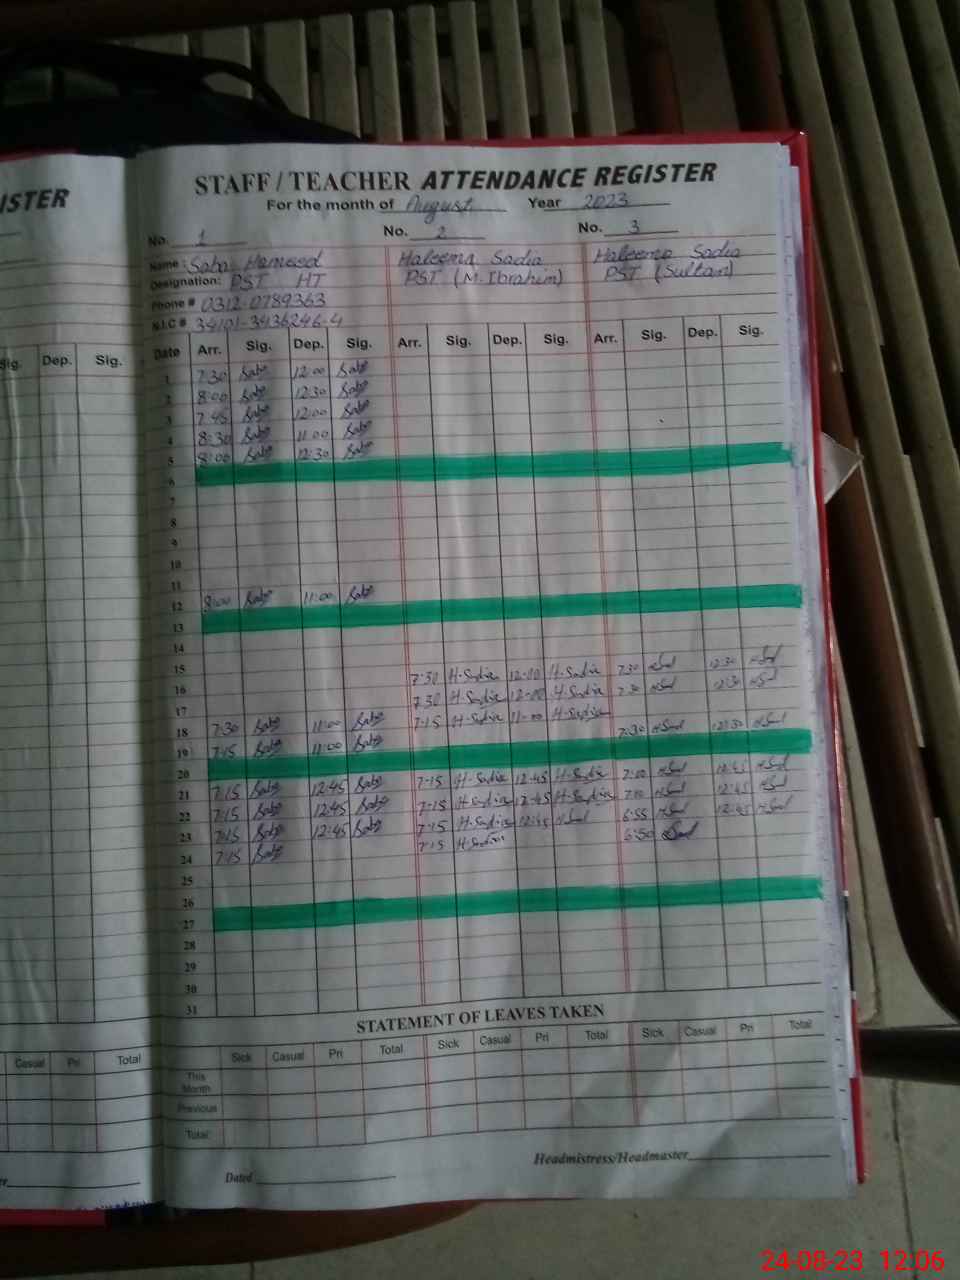 ISTER
STAFF / TEACHER ATTENDANCE REGISTER
For the month of August Year 2023
No. 1 No. 2 No. 3
Name: Saba Hameed Haleema Sadia Haleema Sadia
Designation: PST HT PST (M. Ibrahim) PST (Sultan)
Phone # 0312-0789363
N.I.C # 34101-3436246-4
Sig. Dep. Sig. Date Arr. Sig. Dep. Sig. Arr. Sig. Dep. Sig. Arr. Sig. Dep. Sig.
1 7:30 Saba 12:00 Saba
2 8:00 Saba 12:30 Saba
3 7:45 Saba 12:00 Saba
4 8:30 Saba 11:00 Saba
5 8:00 Saba 12:30 Saba
6
7
8
9
10
11
12 8:00 Saba 11:00 Saba
13
14
15
16 7:30 H-Sadia 12:00 H-Sadia 7:30 12:30
17 7:30 H-Sadia 12:00 H-Sadia 7:30 12:30
18 7:30 Saba 11:00 Saba 7:15 H-Sadia 11:00 H-Sadia
19 7:15 Saba 11:00 Saba 7:30 12:30
20
21 7:15 Saba 12:45 Saba 7:15 H-Sadia 12:45 H-Sadia 7:00 12:45
22 7:15 Saba 12:45 Saba 7:15 H-Sadia 12:45 H-Sadia 7:10 12:45
23 7:15 Saba 12:45 Saba 7:15 H-Sadia 12:45 6:55 12:45
24 7:15 Saba 7:15 H-Sadia 6:50
25
26
27
28
29
30
31
STATEMENT OF LEAVES TAKEN
Casual Pri Total Sick Casual Pri Total Sick Casual Pri Total Sick Casual Pri Total
This Month
Previous
Total
Headmistress/Headmaster
Dated
24-08-23 12:06